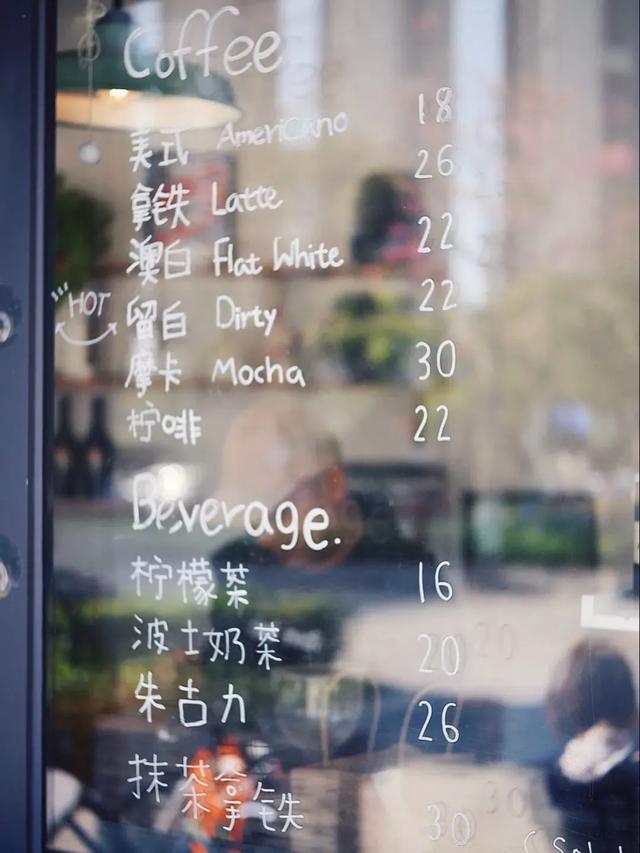 Coffee
美式 Americano 18
拿铁 Latte 26
澳白 Flat White 22
HOT
留白 Dirty 22
摩卡 Mocha 30
柠啡 22
Beverage.
柠檬茶 16
波士奶茶 20
朱古力 26
抹茶拿铁 30